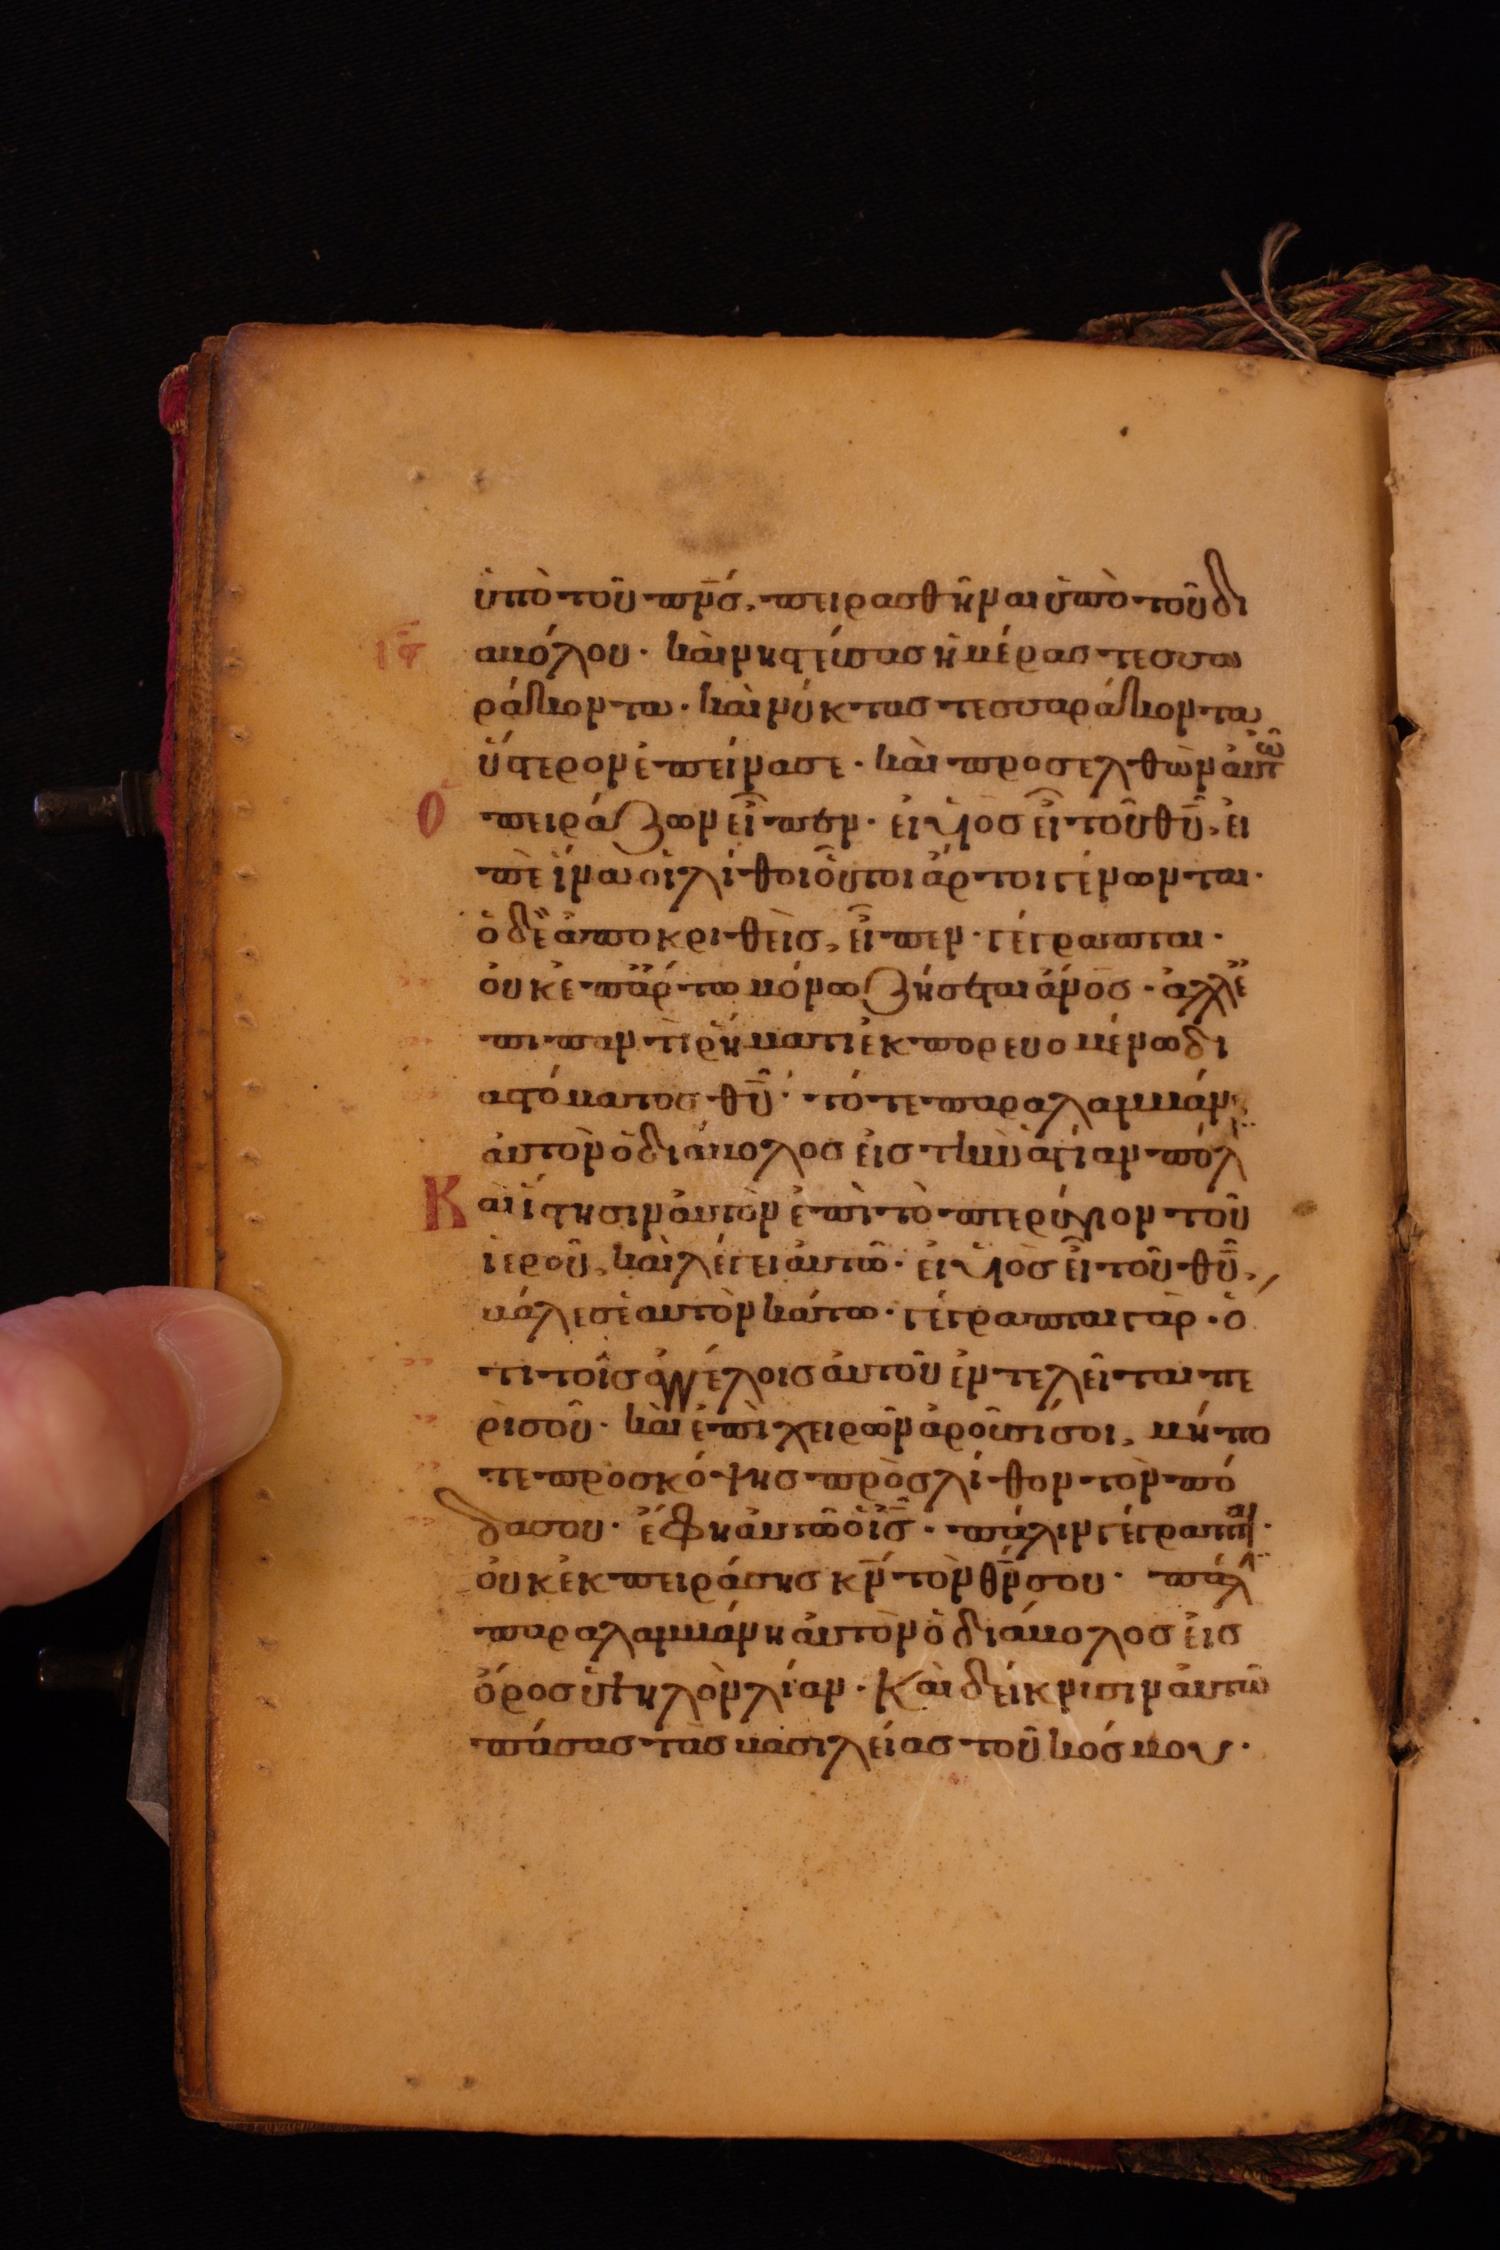 ὑπὸ τοῦ πν̅ς, πειρασθῆναι ὑπὸ τοῦ δι
αβόλου · καὶ νηστεύσας ἡμέρας τεσσα
ράκοντα · καὶ νύκτας τεσσαράκοντα
ὕστερον ἐπείνασε · καὶ προσελθὼν αὐτῶ
ὁ πειράζων εἶπεν · εἰ υἱὸς εἶ τοῦ θυ̅, εἰ
πὲ ἵνα οἱ λίθοι οὗτοι ἄρτοι γένωνται ·
ὁ δὲ ἀποκριθεὶς, εἶπεν · γέγραπται ·
οὐκ ἐπ ἄρτω μόνω ζήσεται ἄν̅ος · ἀλλ ἐ
πι παντὶ ῥήματι ἐκπορευομένω δι
α στόματος θυ̅ · τότε παραλαμβάν
αὐτὸν ὁ διάβολος εἰς τὴν ἁγίαν πόλ
Καὶ ἵστησιν αὐτὸν ἐπὶ τὸ πτερύγιον τοῦ
ἱεροῦ, καὶ λέγει αὐτῶ · εἰ υἱὸς εἶ τοῦ θυ̅,
βάλε σεαυτὸν κάτω · γέγραπται γὰρ · ὅ
τι τοῖς ἀγγέλοις αὐτοῦ ἐντελεῖται πε
ρὶ σοῦ · καὶ ἐπὶ χειρῶν ἀροῦσί σοι, μήπο
τε προσκόψης πρὸς λίθον τὸν πό
δα σου · ἔφη αὐτῶ ὁ ις̅ · πάλιν γέγραπται ·
οὐκ ἐκπειράσης κν̅ τὸν θν̅ σου · πάλ
παραλαμβάνει αὐτὸν ὁ διάβολος εἰς
ὄρος ὑψηλὸν λίαν · καὶ δείκνυσιν αὐτῶ
πάσας τὰς βασιλείας τοῦ κόσμου ·